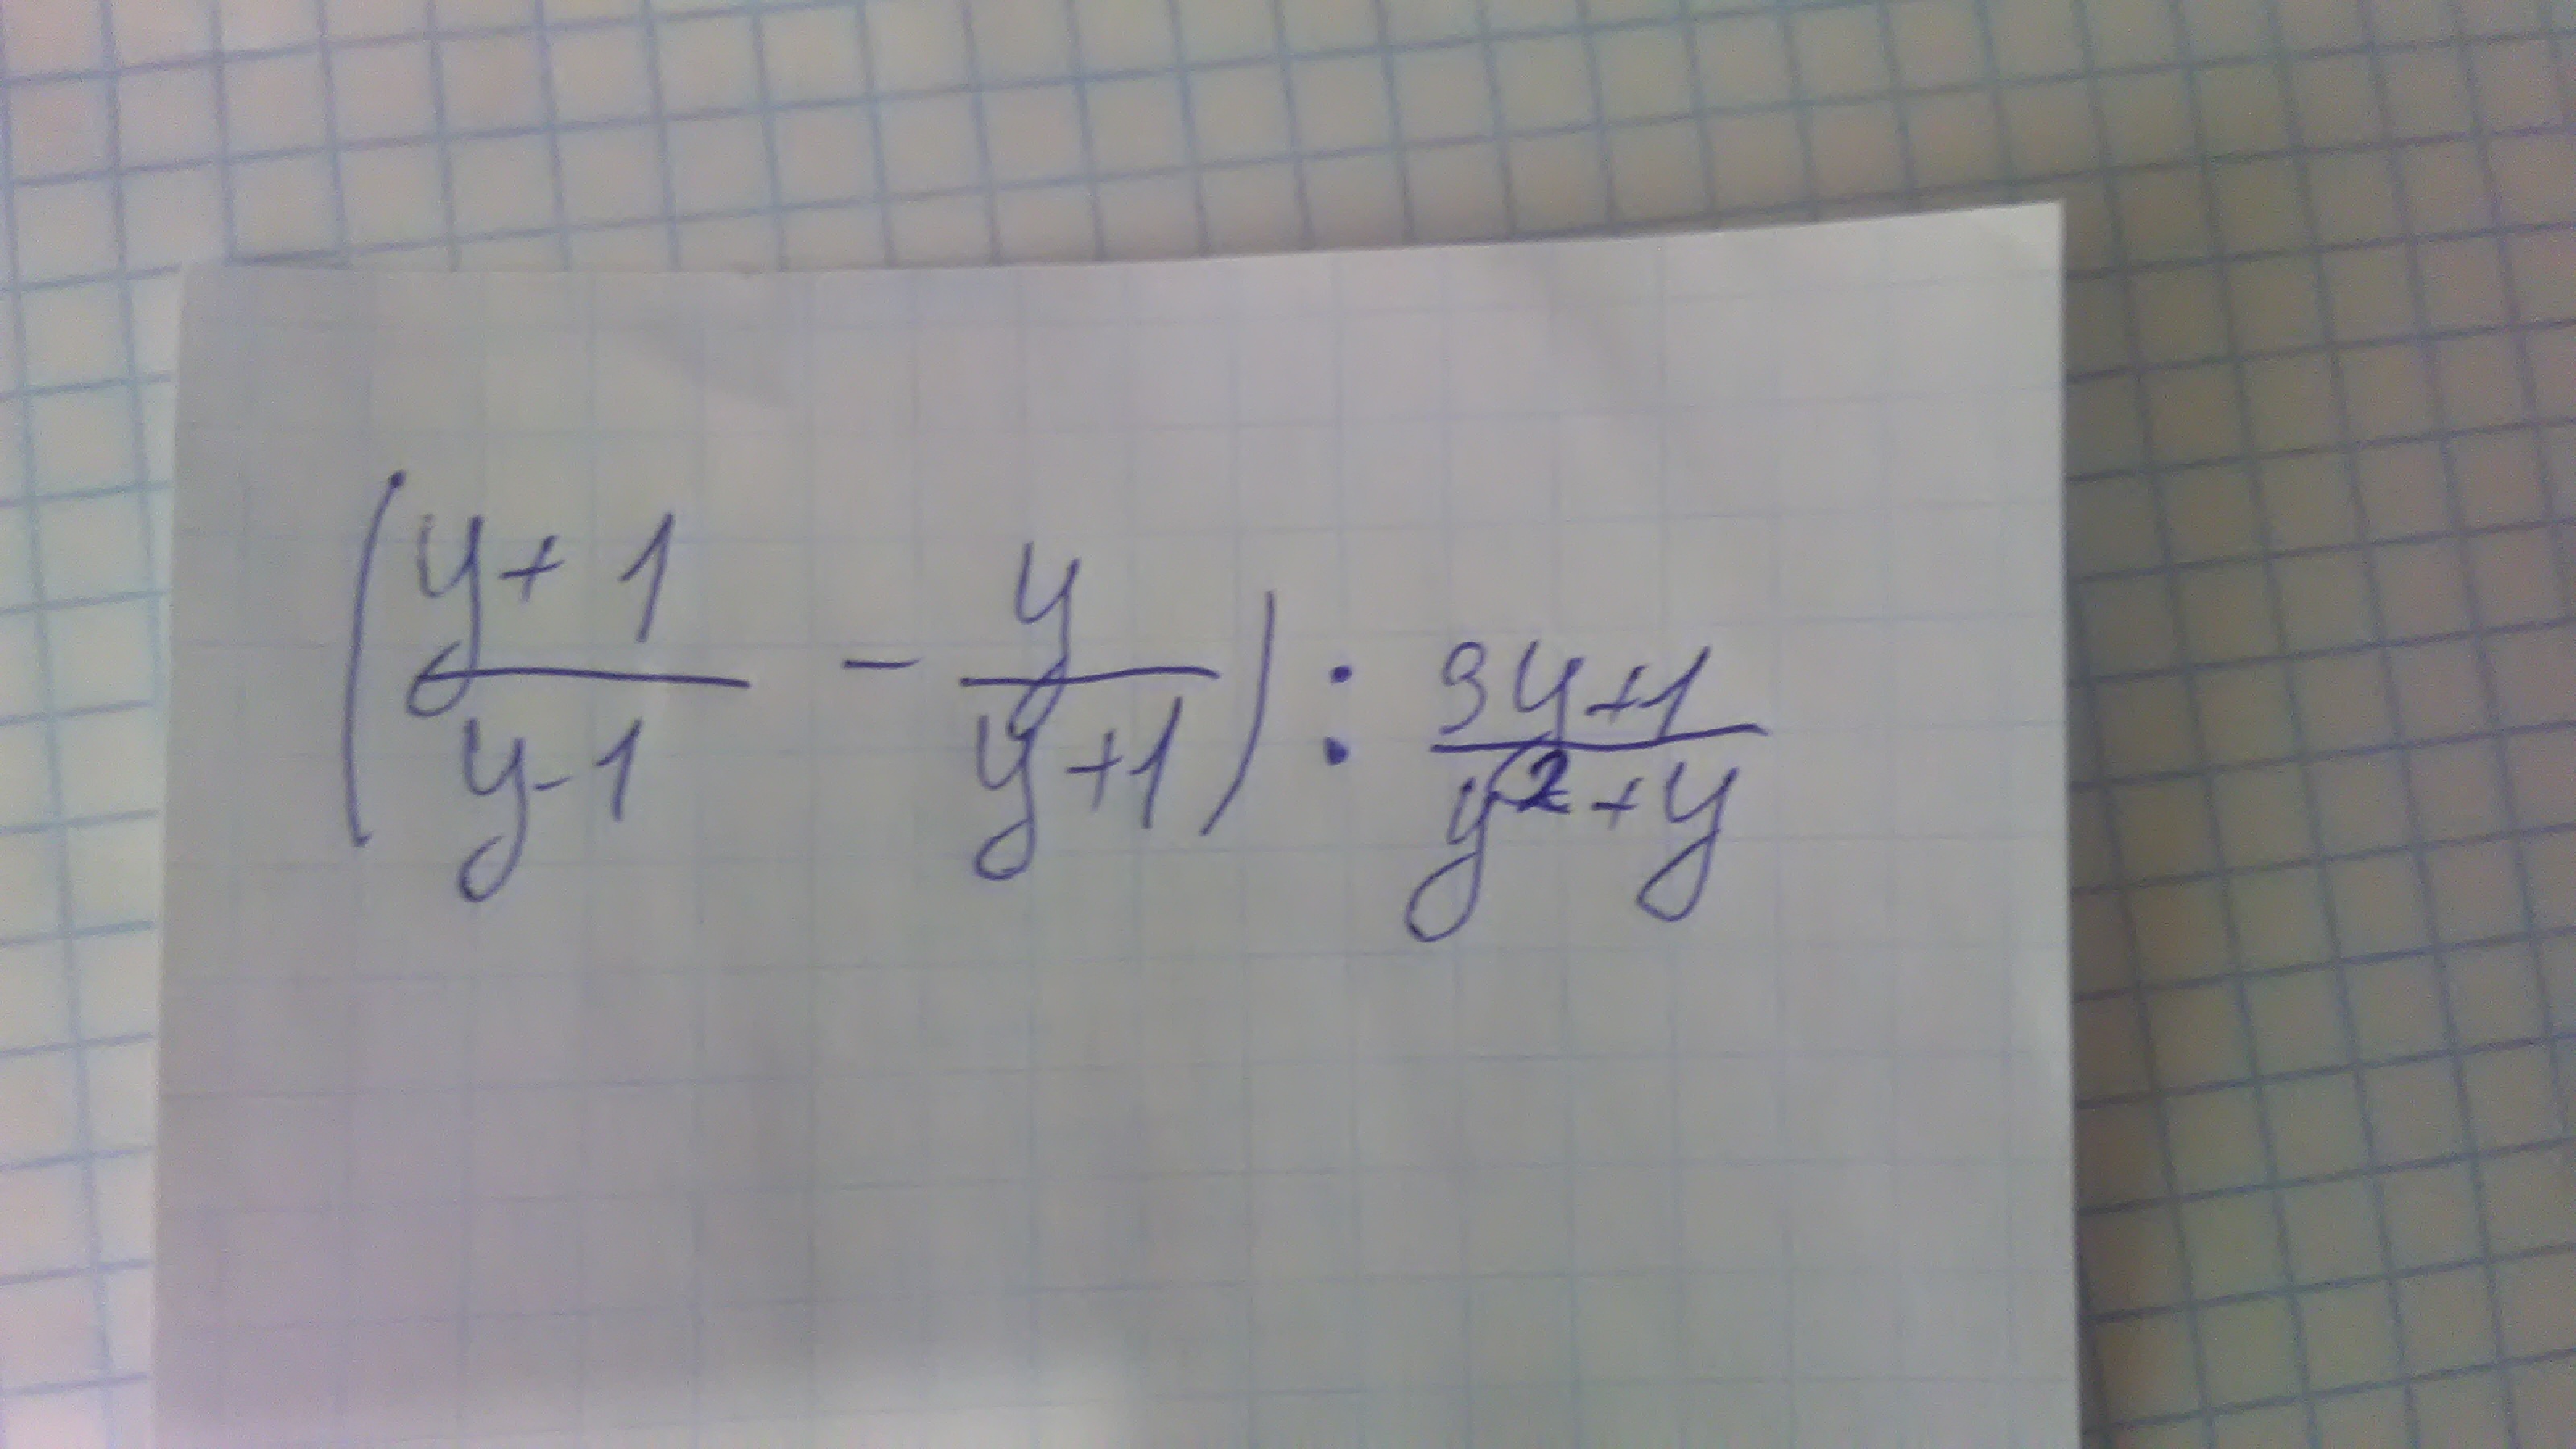 (y+1/y-1 - y/y+1) : 3y+1/y²+y